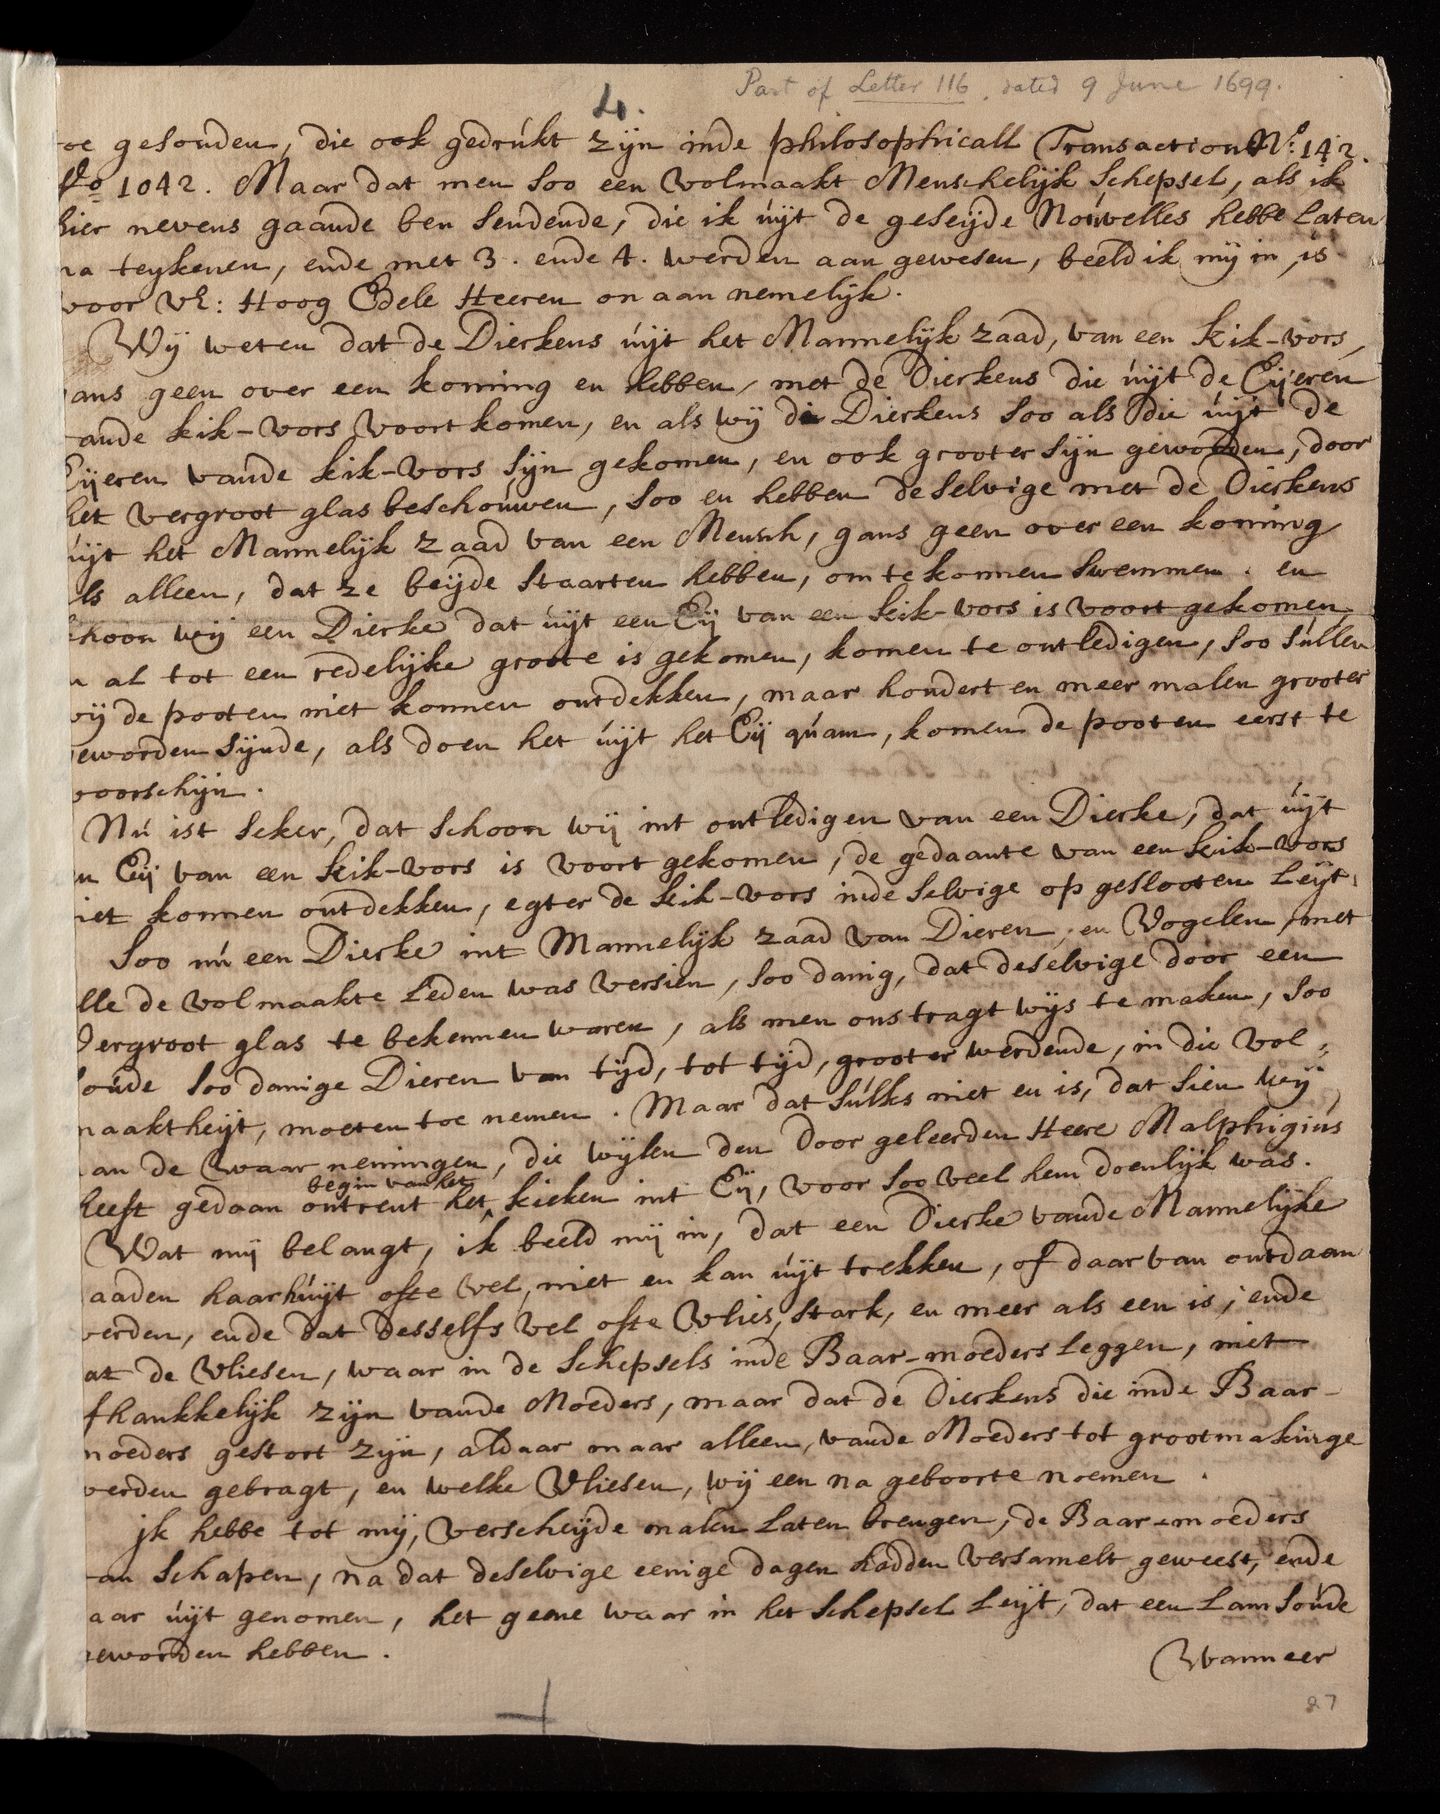 Part of Letter 116, dated 9 June 1699.
4.
oe gesonden, die ook gedrúkt zijn inde philosophicall Transaction No: 142.
fo 1042. Maar dat men soo een volmaakt Menschelijk schepsel, als ik
hier nevens gaande ben sendende, die ik úijt de geseijde Noúvelles hebbe laten
na teykenen, ende met 3. ende 4. werden aan gewesen, beeld ik mij in, is
voor VE: Hoog Edele Heeren on aan nemelijk.
Wij weten dat de Dierkens úijt het Mannelijk zaad, van een kik-vors,
gans geen over een koming en hebben, met de Dierkens die úijt de Eijeren
vande kik-vors voort komen, en als wij die Dierkens soo als die úijt de
Eijeren vande kik-vors sijn gekomen, en ook grooter sijn geworden, door
het vergroot glas beschoúwen, soo en hebben de selvige met de Dierkens
úijt het Mannelijk zaad van een Mensch, gans geen over een koming
als alleen, dat ze beijde staarten hebben, om te konnen swemmen. en
schoon wij een Dierke dat úijt een Eij van een kik-vors is voort gekomen
n al tot een redelijke groote is gekomen, komen te ontledigen, soo súllen
wij de pooten niet konnen ontdekken, maar hondert en meer malen grooter
geworden sijnde, als doen het úijt het Eij qúam, komen de pooten eerst te
voorschijn.
Nú ist seker, dat schoon wij int ontledigen van een Dierke, dat úijt
en Eij van een kik-vors is voort gekomen, de gedaante van een kik-vors
niet konnen ontdekken, egter de kik-vors inde selvige op geslooten leijt.
Soo nú een Dierke int Mannelijk zaad van Dieren, en Vogelen, met
alle de volmaakte leden was versien, soo danig, dat deselvige door een
Vergroot glas te bekennen waren, als men ons tragt wijs te maken, soo
soúde soo danige Dieren van tijd, tot tijd, grooter werdende, in die vol=
maaktheijt, moeten toe nemen. Maar dat súlks niet en is, dat sien wij
aan de waar nemingen, die wijlen den Door geleerden Heere Malphigiús
heeft gedaan ontrent het begin van het kieken int Eij, voor soo veel hem doenlijk was.
Wat mij belangt, ik beeld mij in, dat een Dierke vande Mannelijke
zaaden haar húijt ofte vel, niet en kan úijt trekken, of daar van ontdaan
werden, ende dat desselfs vel ofte vlies, stark, en meer als een is; ende
dat de vliesen, waar in de schepsels inde Baar-moeders leggen, niet
afhankkelijk zijn vande Moeders, maar dat de Dierkens die inde Baar-
moeders gestort zijn, aldaar maar alleen, vande Moeders tot grootmakinge
werden gebragt, en welke vliesen, wij een na geboorte noemen.
jk hebbe tot mij, verscheijde malen laten brengen, de Baar-moeders
van schapen, na dat deselvige eenige dagen hadden versamelt geweest, ende
daar úijt genomen, het gene waar in het schepsel leijt, dat een Lam soúde
geworden hebben.
Wanneer
27